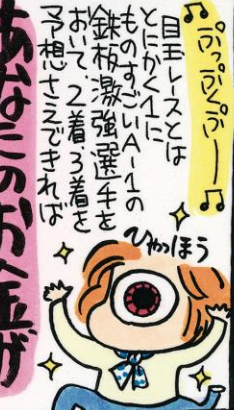 ♫ぷっぷくぷー♫
目玉レースとは
とにかく1に
ものすごいA-1の
鉄板激強選手を
おいて、2着3着を
予想さえできれば
ひゃっほう
あなたのお金が